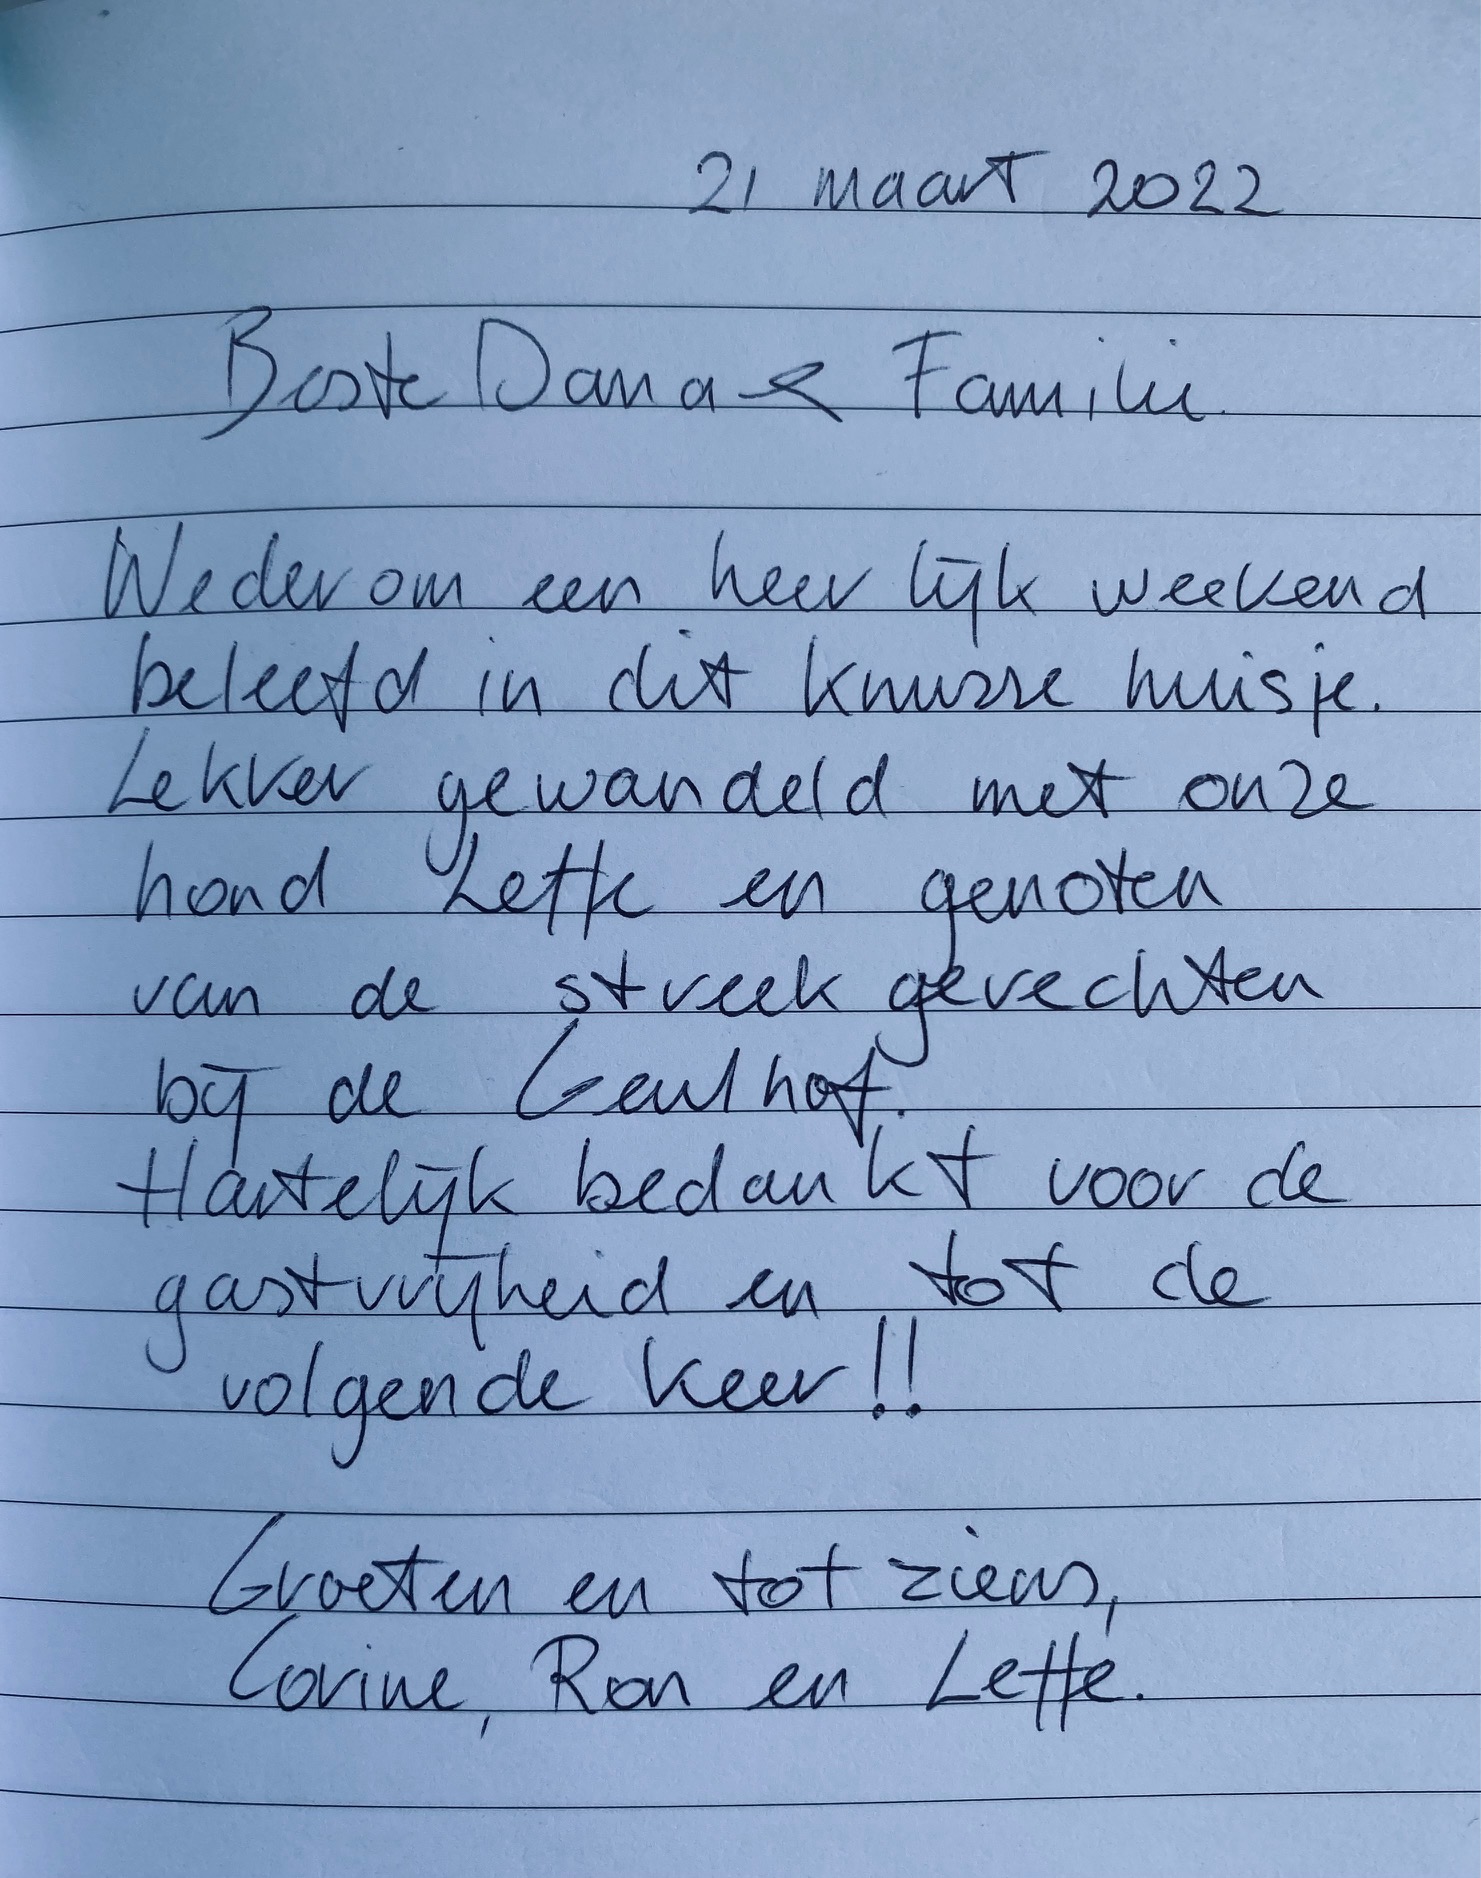 21 maart 2022
Beste Dana & Familie.
Wederom een heerlijk weekend
beleefd in dit knusse huisje.
Lekker gewandeld met onze
hond Leffe en genoten
van de streekgerechten
bij de Geulhof.
Hartelijk bedankt voor de
gastvrijheid en tot de
volgende keer!!
Groeten en tot ziens,
Corine, Ron en Leffe.